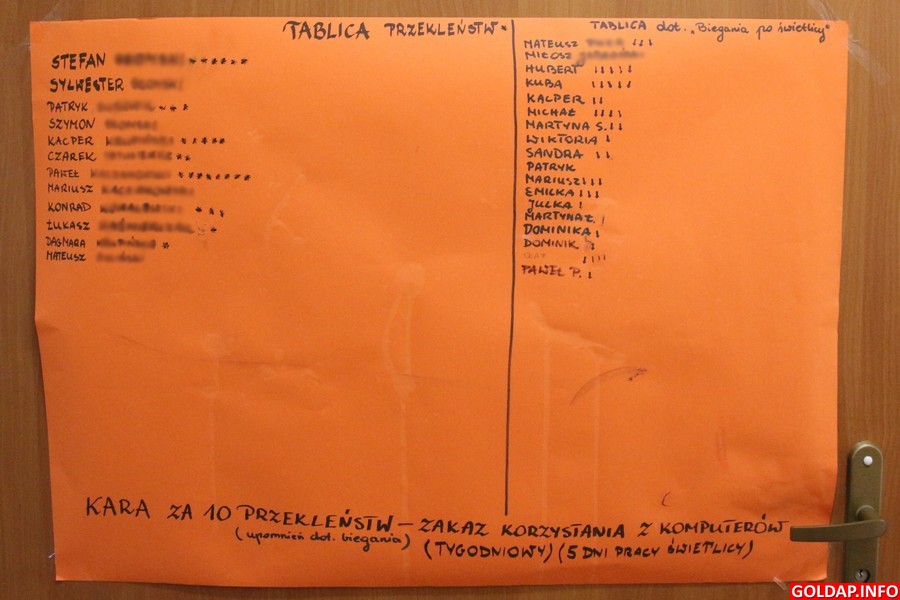 TABLICA PRZEKLEŃSTW
STEFAN ******
SYLWESTER
PATRYK ***
SZYMON
KACPER *****
CZAREK **
PAWEŁ ********
MARIUSZ
KONRAD ***
ŁUKASZ *
DAGMARA *
MATEUSZ
TABLICA dot. „Biegania po świetlicy"
MATEUSZ !!!
MIŁOSZ
HUBERT !!!!
KUBA !!!!
KACPER !!
MICHAŁ !!!!
MARTYNA S. !!
WIKTORIA !
SANDRA !!
PATRYK
MARIUSZ !!!
EMILKA !!!
JULKA !
MARTYNA Z. !
DOMINIKA !
DOMINIK
!!!!
PAWEŁ P. !
KARA ZA 10 PRZEKLEŃSTW – ZAKAZ KORZYSTANIA Z KOMPUTERÓW
(upomnień dot. biegania) (TYGODNIOWY) (5 DNI PRACY ŚWIETLICY)
GOLDAP.INFO